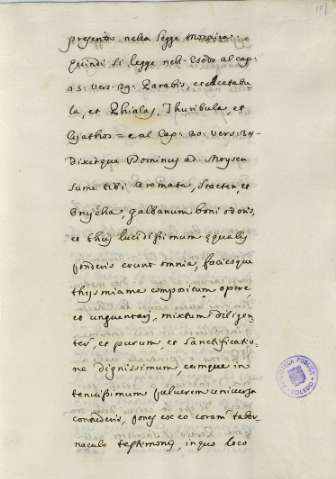 presento nella legge mosaica:
quindi si legge nell'Esodo al cap:
25: vers. 29: Parabis et acetabu
la, et Phialas, Thuribula, et
Cyathos = e al Cap: 30: vers: 34
Dixitque Dominus ad Moysen
sume tibi aromata, stacten, et
onycha, galbanum boni odoris,
et thus lucidissimum equalis
ponderis erunt omnia, faciesque
thymiama compositum opere
et unguentarij, mixtum diligen
ter, et purum, et sanctificatio
ne dignissimum, cumque in
tenuissimum pulverem universa
contuderis, pones ex eo coram taber
naculo testimonij, in quo loco